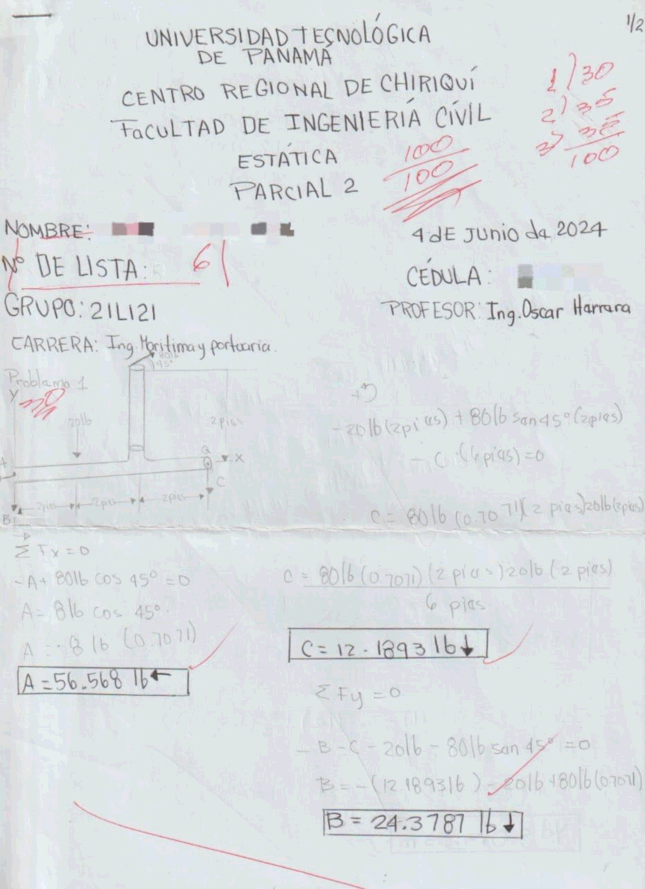 1/2
UNIVERSIDAD TECNOLÓGICA
DE PANAMÁ
CENTRO REGIONAL DE CHIRIQUÍ
FACULTAD DE INGENIERÍA CÍVIL
ESTÁTICA
PARCIAL 2
100
100
1) 30
2) 35
3) 35
100
NOMBRE:
4 de Junio de 2024
Nº DE LISTA: 6
CÉDULA:
GRUPO: 21L121
PROFESOR: Ing. Oscar Herrera
CARRERA: Ing. Marítima y portuaria.
Problema 1
Y
45°
20lb
2pies
A
Q
X
C
2pies
2pies
2pies
B
-20lb(2pies) + 80lb sen 45° (2pies)
- C (6pies) = 0
C = 80lb (0.7071)(2 pies)20lb(2pies)
Σ Fx = 0
-A + 80lb cos 45° = 0
A = 8lb cos 45°
A = 8 lb (0.7071)
A = 56.568 lb ←
C = 80lb (0.7071) (2 pies) 20lb (2 pies)
6 pies
C = 12.1893 lb ↓
Σ Fy = 0
- B - C - 20lb - 80lb sen 45° = 0
B = -(12.1893lb) - 20lb + 80lb (0.7071)
B = 24.3787 lb ↓